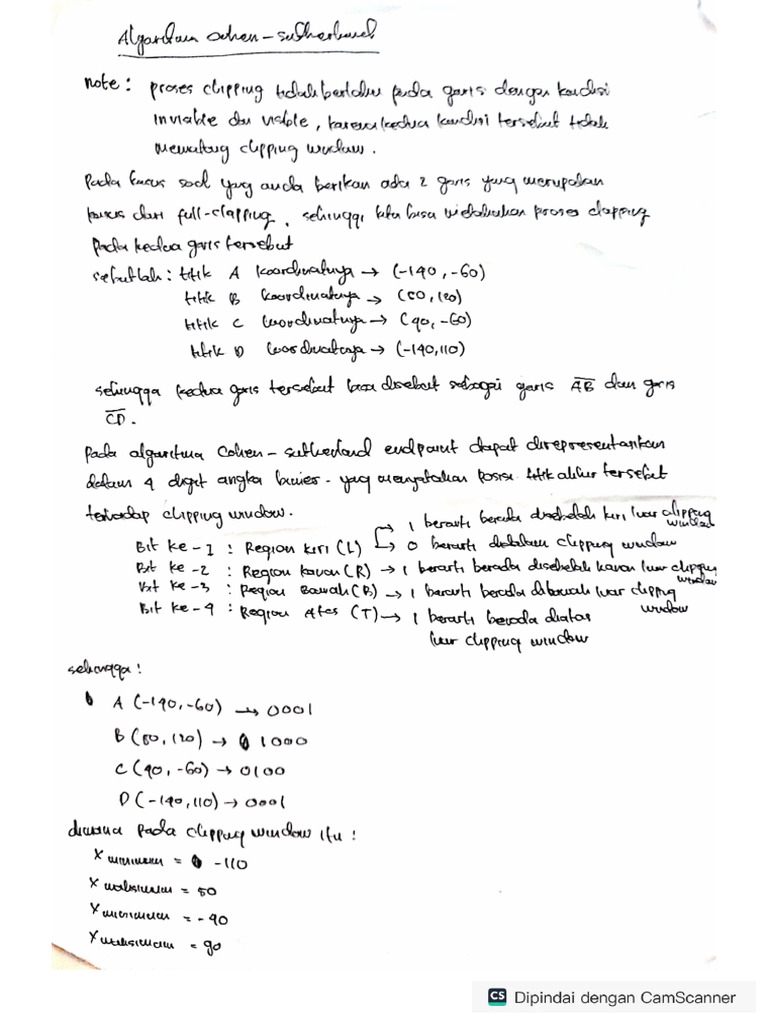 Algoritma Cohen - Sutherland
note : proses clipping tidak berlaku pada garis dengan kondisi
Invisible dan visible, karena kedua kondisi tersebut tidak
memotong clipping window.
Pada kasus soal yang anda berikan ada 2 garis yang merupakan
kasus dari full-clipping, sehingga kita bisa melakukan proses clipping
pada kedua garis tersebut
sebutlah : titik A koordinatnya → (-140, -60)
titik B koordinatnya → (60, 120)
titik C koordinatnya → (90, -60)
titik D koordinatnya → (-140, 110)
sehingga kedua garis tersebut bisa disebut sebagai garis AB dan garis
CD.
Pada algoritma Cohen - Sutherland endpoint dapat direpresentasikan
dalam 4 digit angka biner - yang menyatakan posisi titik akhir tersebut
terhadap clipping window.
Bit ke - 1 : Region kiri (L) → 1 berarti berada disebelah kiri luar clipping window
→ 0 berarti didalam clipping window
Bit ke - 2 : Region kanan (R) → 1 berarti berada disebelah kanan luar clipping window
Bit ke - 3 : Region Bawah (B) → 1 berarti berada dibawah luar clipping window
Bit ke - 4 : Region Atas (T) → 1 berarti berada diatas
luar clipping window
sehingga :
A (-140, -60) → 0001
B (60, 120) → 1000
C (90, -60) → 0100
D (-140, 110) → 0001
dimana pada clipping window itu :
X minimum = -110
X maksimum = 50
Y minimum = - 90
Y maksimum = 90
CS Dipindai dengan CamScanner